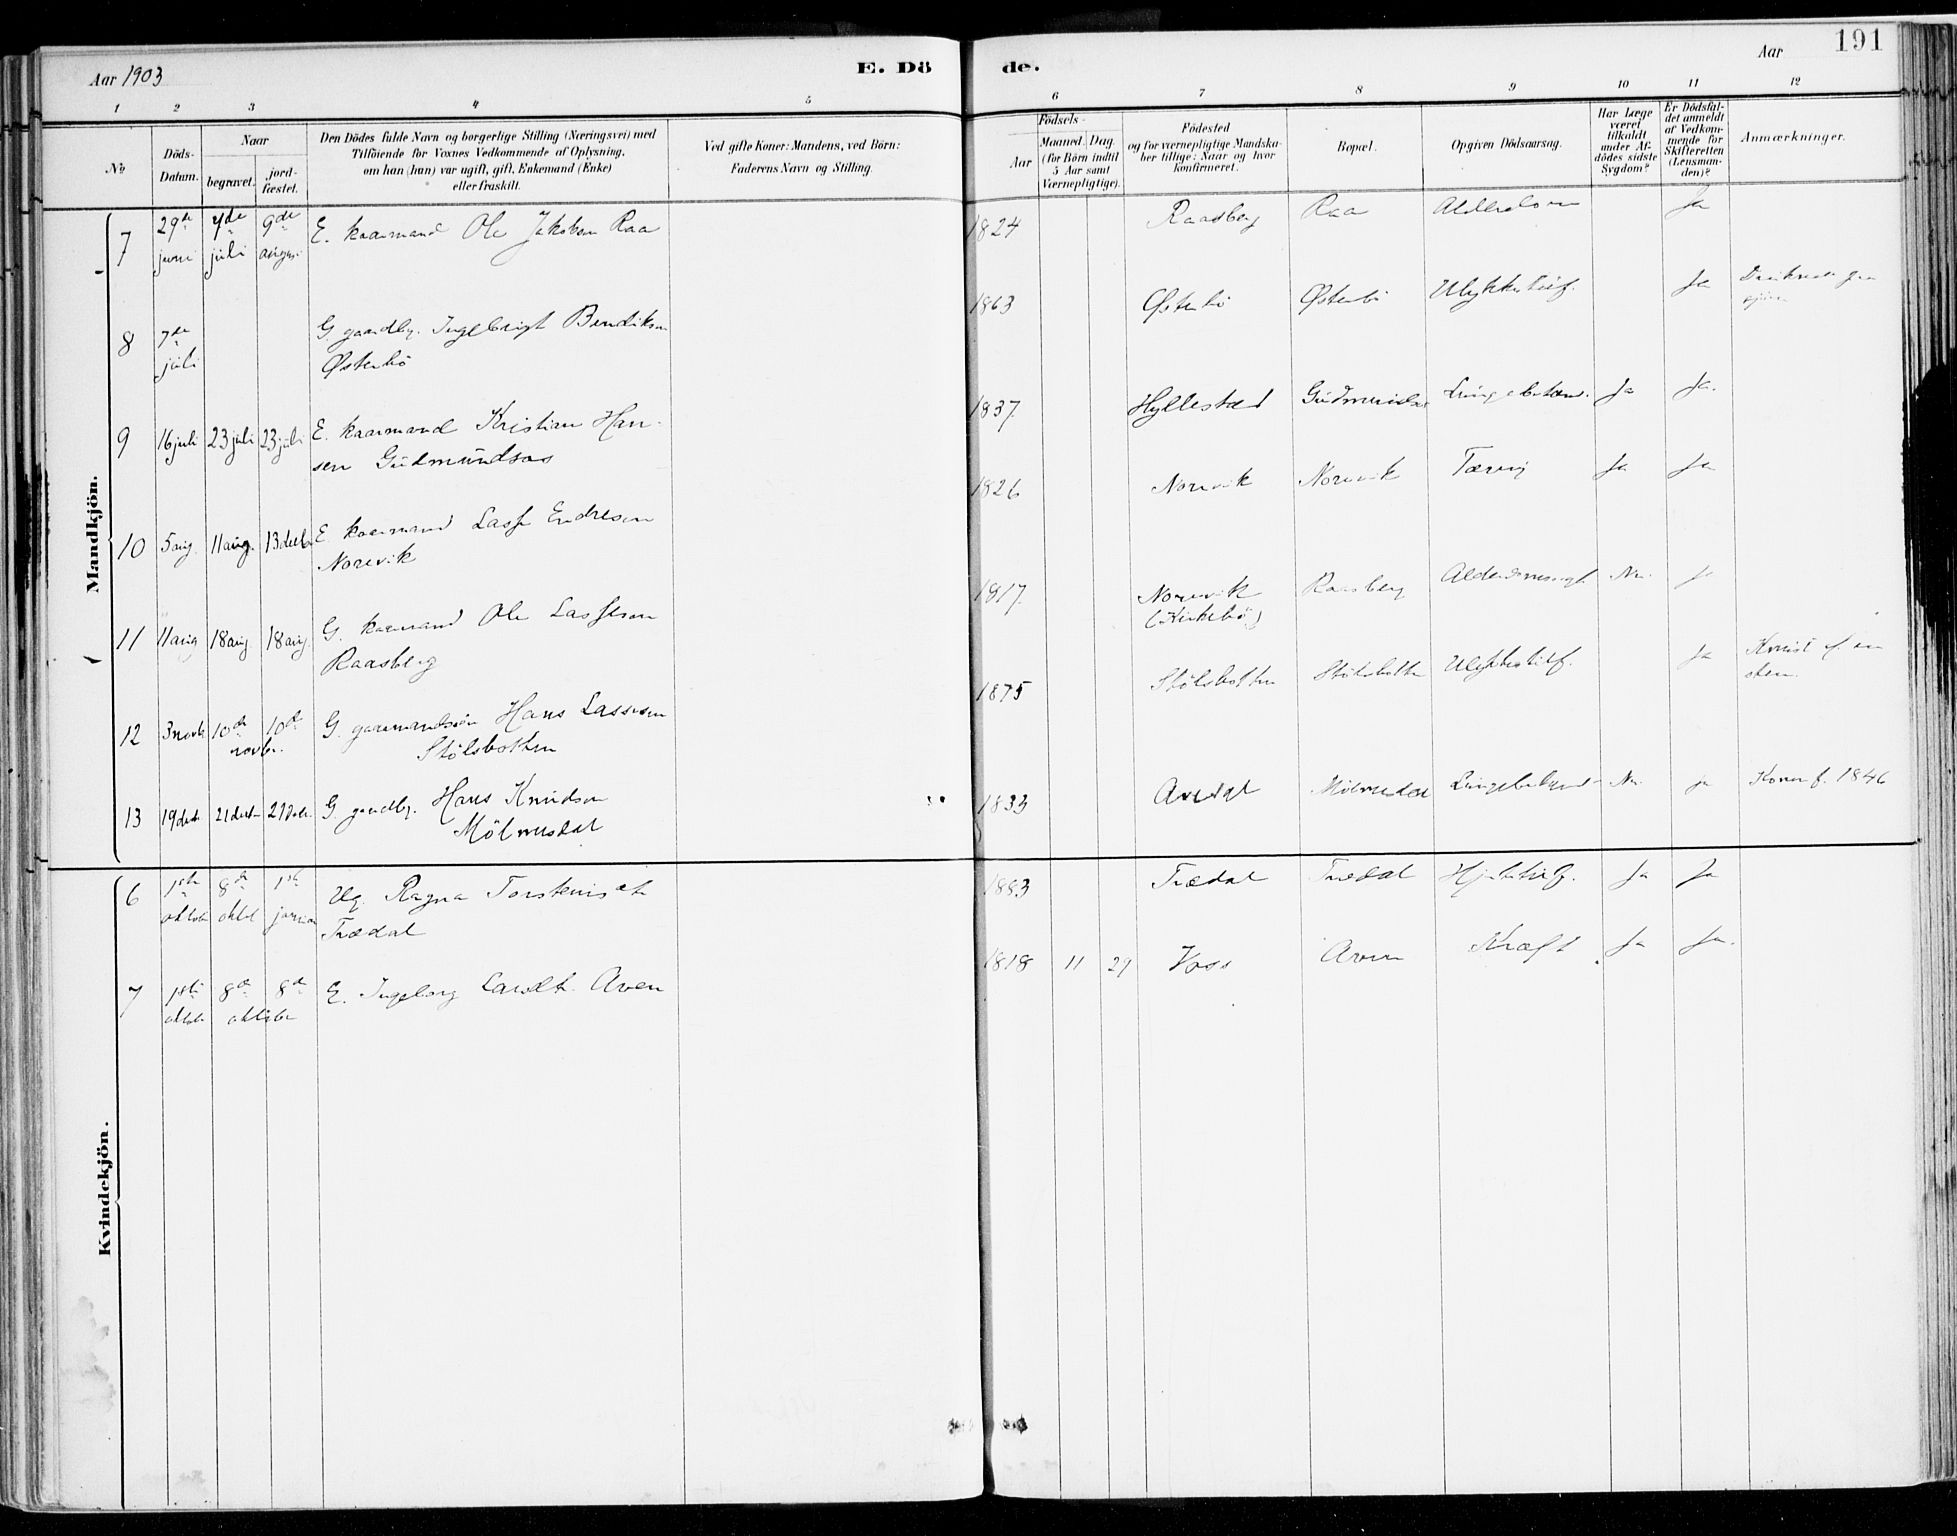 Aar 1903
E. Dö de.
Aar
191
1 2 3 4 5 6 7 8 9 10 11 12
No
Döds-Datum.
Naar
begravet.
jord-fæstet.
Den Dödes fulde Navn og borgerlige Stilling (Næringsvei) med
Tilföiende for Voxnes Vedkommende af Oplysning,
om han (hun) var ugift, gift, Enkemand (Enke)
eller fraskilt.
Ved gifte Koner: Mandens, ved Börn:
Faderens Navn og Stilling.
Födsels-
Aar
Maaned. Dag.
(for Börn indtil
5 Aar samt
Værnepligtige).
Födested
og for værnepligtige Mandska-
ber tillige: Naar og hvor
konfirmeret.
Bopæl.
Opgiven Dödsaarsag.
Har Læge
været
tilkaldt
under Af-
dödes sidste
Sygdom?
Er Dödsfal-
det anmeldt
af Vedkom-
mende for
Skifteretten
(Lensman-
den)?
Anmærkninger.
Mandkjön.
7 29de juni 4de juli 9de E. kaarmand Ole Jakobsen Raa 1824 Raasberg Raa Ja
8 7de juli G. gaardbr. Ingebrigt Bendiksen
Østerbö 1863 Østerbö Østerbö Ulykkestilf. Ja
9 16 juli 23 juli 23 juli E. kaarmand Kristian Han-
sen Gudmundsos 1837 Hyllestad Ja Ja.
10 5 aug. 11 aug. E kaarmand Lasse Endresen
Norevik 1826 Norevik Norevik Tæring Ja Ja
11 11 aug 18 aug 18 aug. G. kaarmand Ole Lassesen
Raasberg 1817. Norevik
(Kirkebö) Raasberg ja
12 3 novb 10de 10de
novbr. G. gaarmandssön Hans Lassesen
Stölsbotten 1875 Stölsbotten Stölsbotten Ulykkestilf. Ja
13 19 decb 21 decb G. gaardbr. Hans Knudsen
Mölmesdal 1833 Mölmesdal ja 1846
Kvindekjön.
6 1ste oktob 8de oktob 1ste januar Ug. Ragna Torstensdt
Trædal 1883 Trædal Trædal Ja Ja
7 1ste oktob 8de 8de
oktober E. Ingeborg Larsdt. Aven 1818 11 29 Voss Aven Kræft Ja Ja.